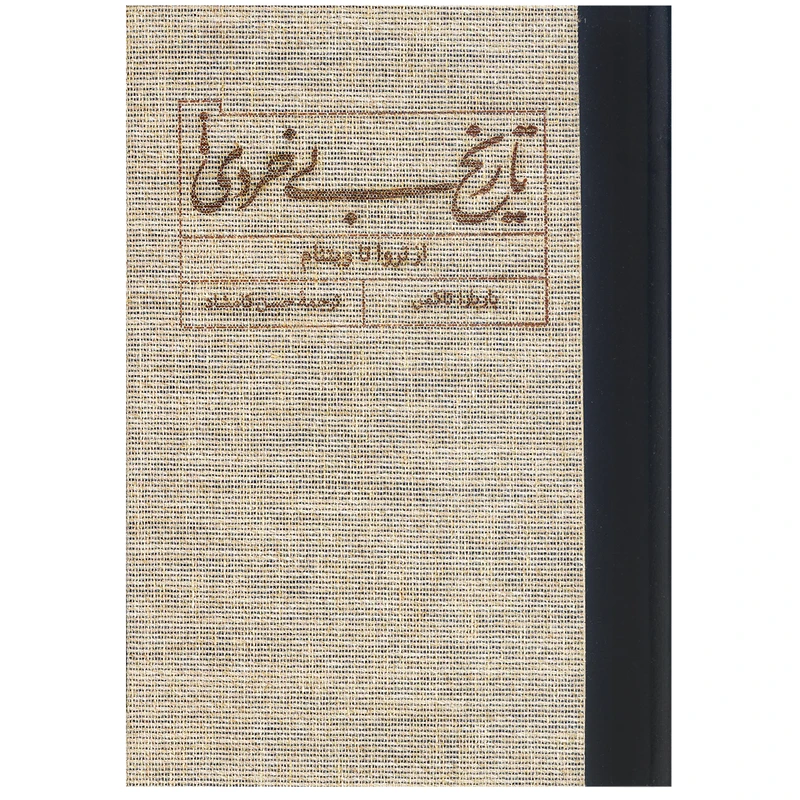 تاریخ بی‌خردی
از تروا تا ویتنام
باربارا تاکمن
ترجمهٔ حسن کامشاد